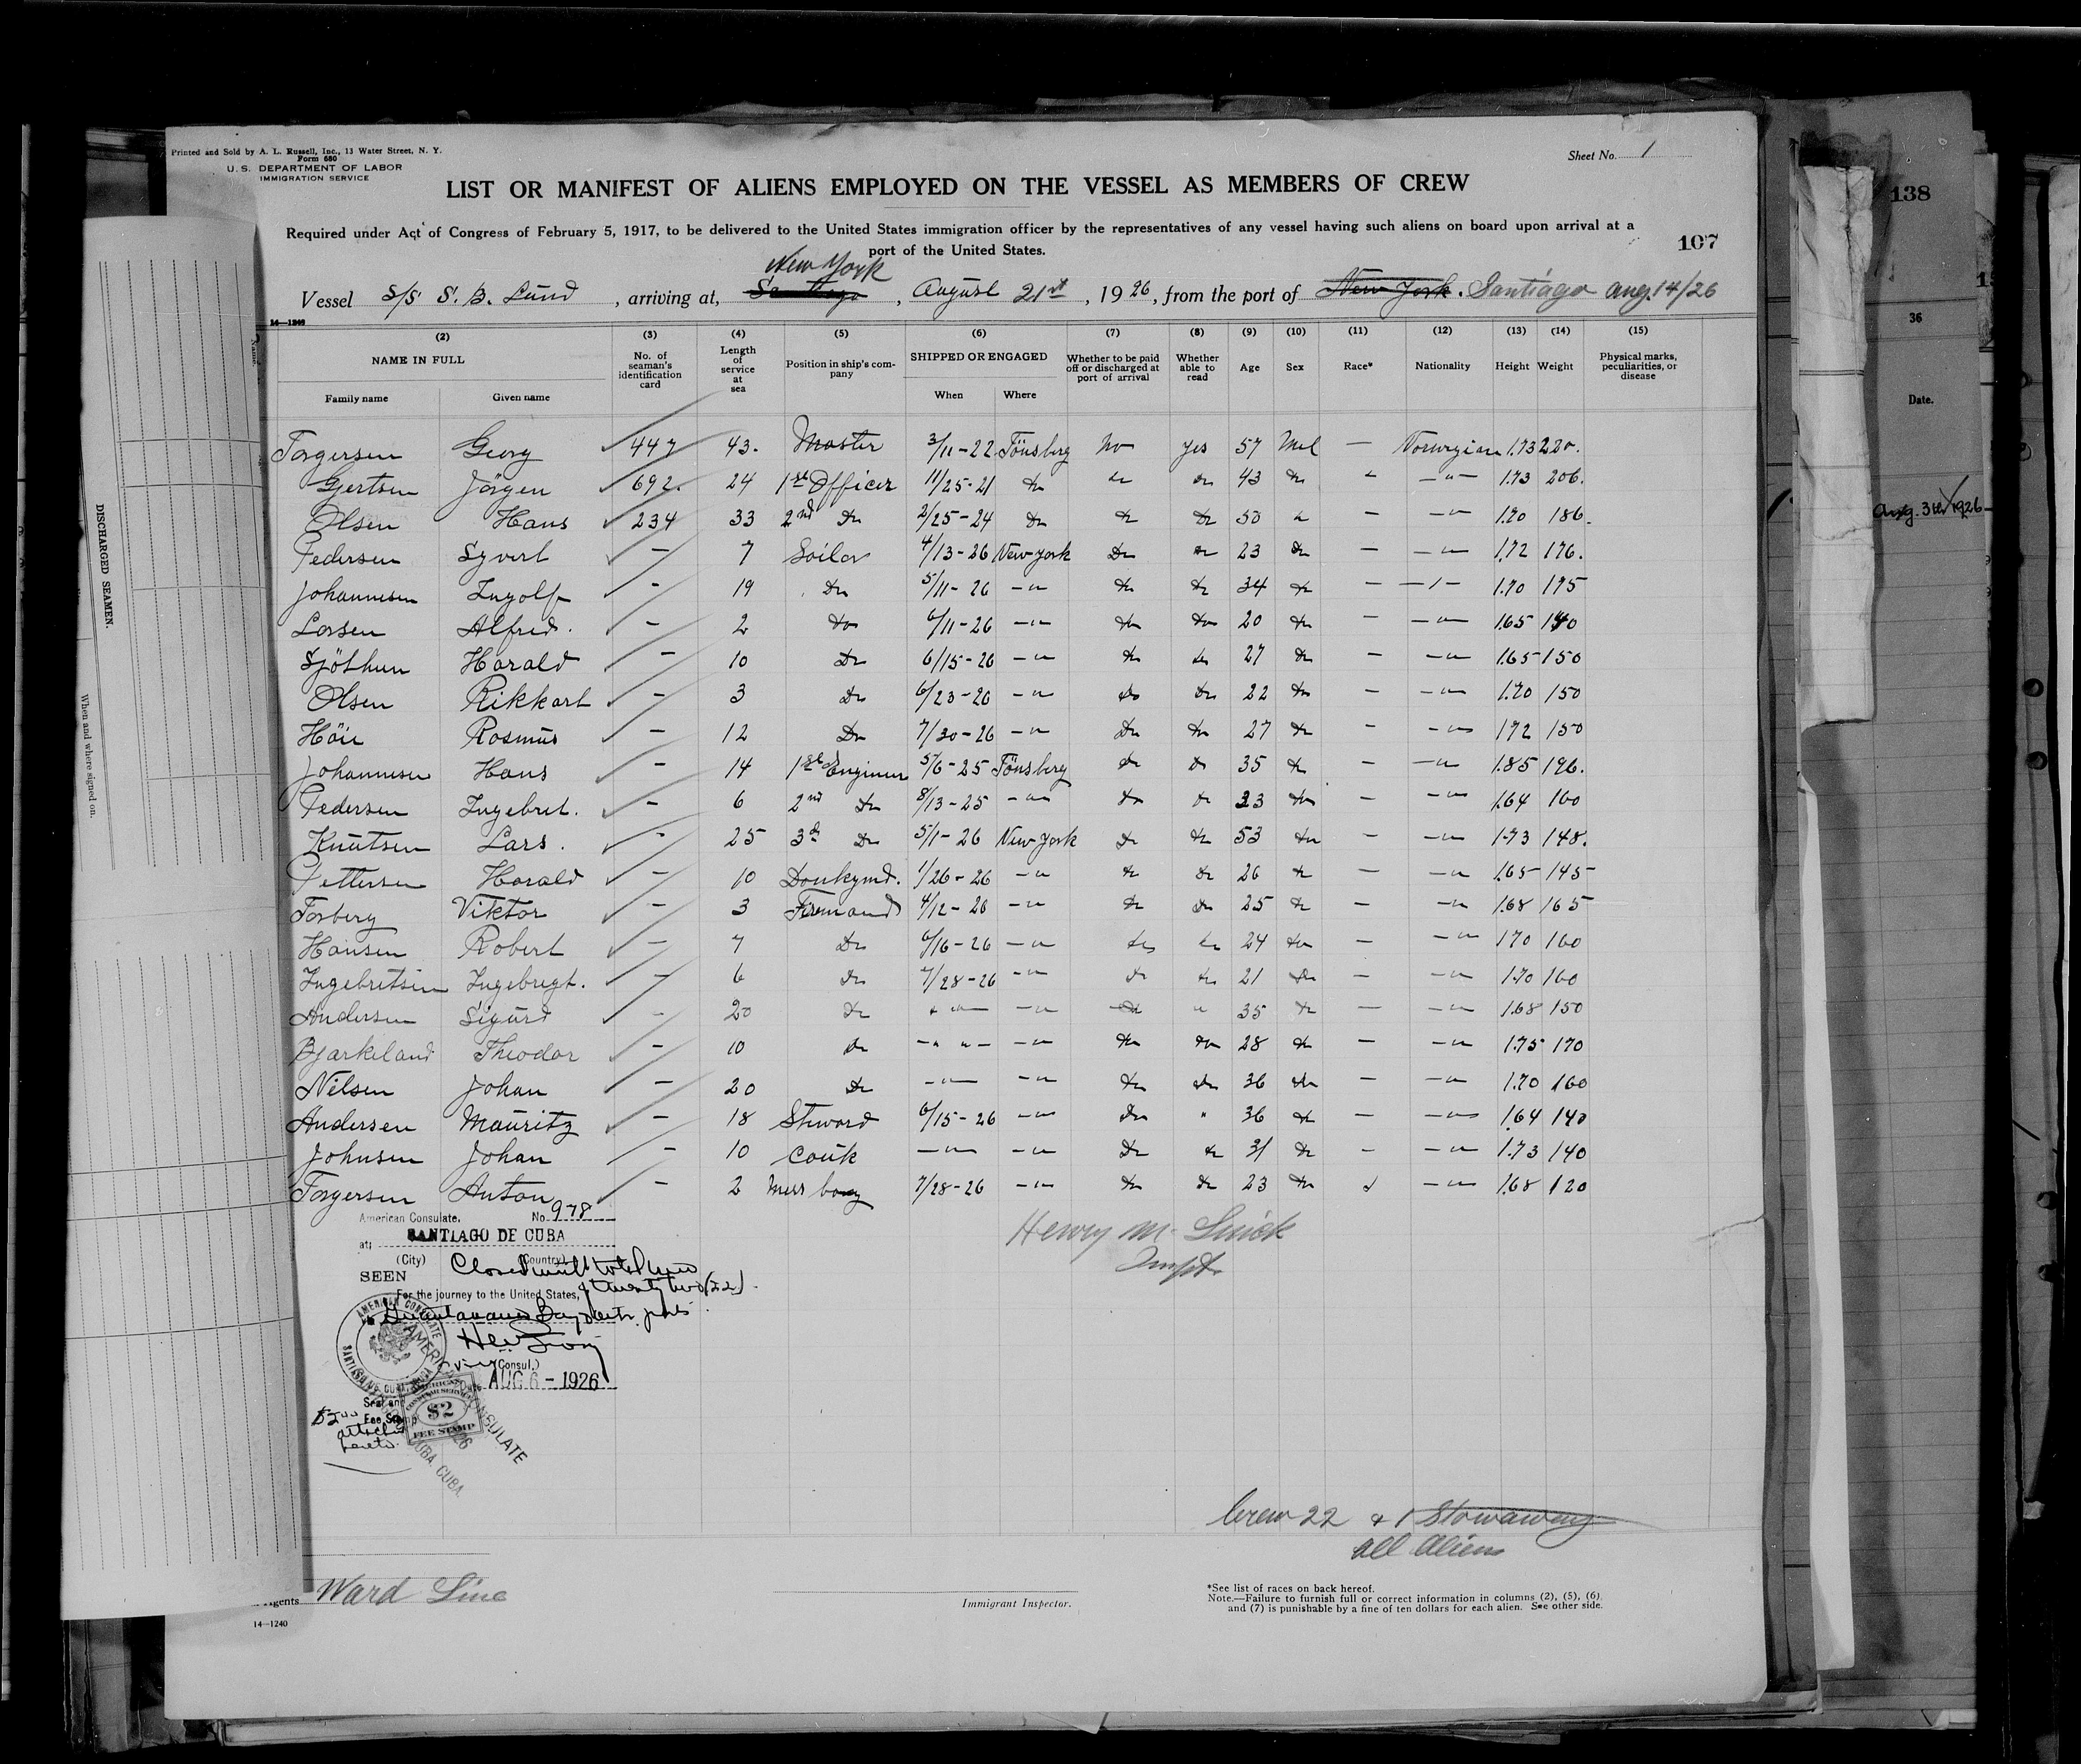 Printed and Sold by A. L. Russell, Inc., 13 Water Street, N. Y.
Form 680
U. S. DEPARTMENT OF LABOR
IMMIGRATION SERVICE
Sheet No. 1
LIST OR MANIFEST OF ALIENS EMPLOYED ON THE VESSEL AS MEMBERS OF CREW
Required under Act of Congress of February 5, 1917, to be delivered to the United States immigration officer by the representatives of any vessel having such aliens on board upon arrival at a
port of the United States.
107
New York
Vessel S/S S. B. Lund, arriving at, Santiago, August 21st, 1926, from the port of New York. Santiago Aug. 14/26
14—1240
(2) (3) (4) (5) (6) (7) (8) (9) (10) (11) (12) (13) (14) (15)
NAME IN FULL No. of seaman's identification card Length of service at sea Position in ship's company SHIPPED OR ENGAGED Whether to be paid off or discharged at port of arrival Whether able to read Age Sex Race* Nationality Height Weight Physical marks, peculiarities, or disease
Family name Given name When Where
Torgersen Georg 447 43. Master 3/11-22 Tönsberg No yes 57 Mel — Norwegian 1.73 220.
Gjertsen Jörgen 692. 24 1st Officer 11/25-21 Do Do Do 43 Do " —"— 1.73 206.
Olsen Hans 234 33 2nd Do 2/25-24 Do Do Do 50 " — —"— 1.70 186.
Pedersen Syvert — 7 Sailor 4/13-26 New York Do Do 23 Do — —"— 1.72 176.
Johannesen Ingolf - 19 Do 5/11-26 —"— Do Do 34 Do — —"— 1.70 175
Larsen Alfred. - 2 Do 6/11-26 —"— Do Do 20 Do — —"— 1.65 140
Sjöthun Harald - 10 Do 6/15-26 —"— Do Do 27 Do — —"— 1.65 150
Olsen Rikkart - 3 Do 6/23-26 —"— Do Do 22 Do — —"— 1.70 150
Höie Rasmus — 12 Do 7/30-26 —"— Do Do 27 Do — —"— 1.72 150
Johannesen Hans - 14 1st Engineer 5/6-25 Tönsberg Do Do 35 Do — —"— 1.85 196.
Pedersen Ingebret. — 6 2nd Do 8/13-25 —"— Do Do 23 Do — —"— 1.64 160
Knutsen Lars. - 25 3d Do 5/1-26 New York Do Do 53 Do — —"— 1.73 148.
Pettersen Harald — 10 Donkeymd. 1/26-26 —"— Do Do 26 Do — —"— 1.65 145
Torberg Viktor — 3 Firemand 4/12-26 —"— Do Do 25 Do — —"— 1.68 165
Hansen Robert — 7 Do 6/16-26 —"— Do Do 24 Do — —"— 1.70 160
Ingebretsen Ingebregt. — 6 Do 7/28-26 —"— Do Do 21 Do — —"— 1.70 160
Andersen Sigurd - 20 Do —"— —"— Do " 35 Do — —"— 1.68 150
Bjarkeland Theodor — 10 Do —"— —"— Do Do 28 Do — —"— 1.75 170
Nilsen Johan — 20 Do —"— —"— Do Do 36 Do — —"— 1.70 160
Andersen Mauritz — 18 Steward 6/15-26 —"— Do " 36 Do — —"— 1.64 140
Johnsen Johan — 10 Couk —"— —"— Do Do 31 Do - —"— 1.73 140
Torgersen Anton — 2 Mess boy 7/28-26 —"— Do Do 23 Do —"— 1.68 120
American Consulate. No. 978
at: SANTIAGO DE CUBA
(City) (Country)
SEEN Closed with total
For the journey to the United States, of twenty two (22)
Guantanamo Bay
(Consul.)
AUG 6 - 1926
AMERICAN CONSULATE
SANTIAGO DE CUBA, CUBA
Seal and
Fee Stamp
attached
hereto.
AMERICAN
CONSULAR SERVICE
$2
FEE STAMP
Henry M.
Inspt.
Crew 22 & 1 Stowaway
all Aliens
Agents Ward Line
Immigrant Inspector.
*See list of races on back hereof.
Note.—Failure to furnish full or correct information in columns (2), (5), (6),
and (7) is punishable by a fine of ten dollars for each alien. See other side.
14—1240
DISCHARGED SEAMEN.
When and where signed on.
Name.
138
36
Date.
Aug. 1926